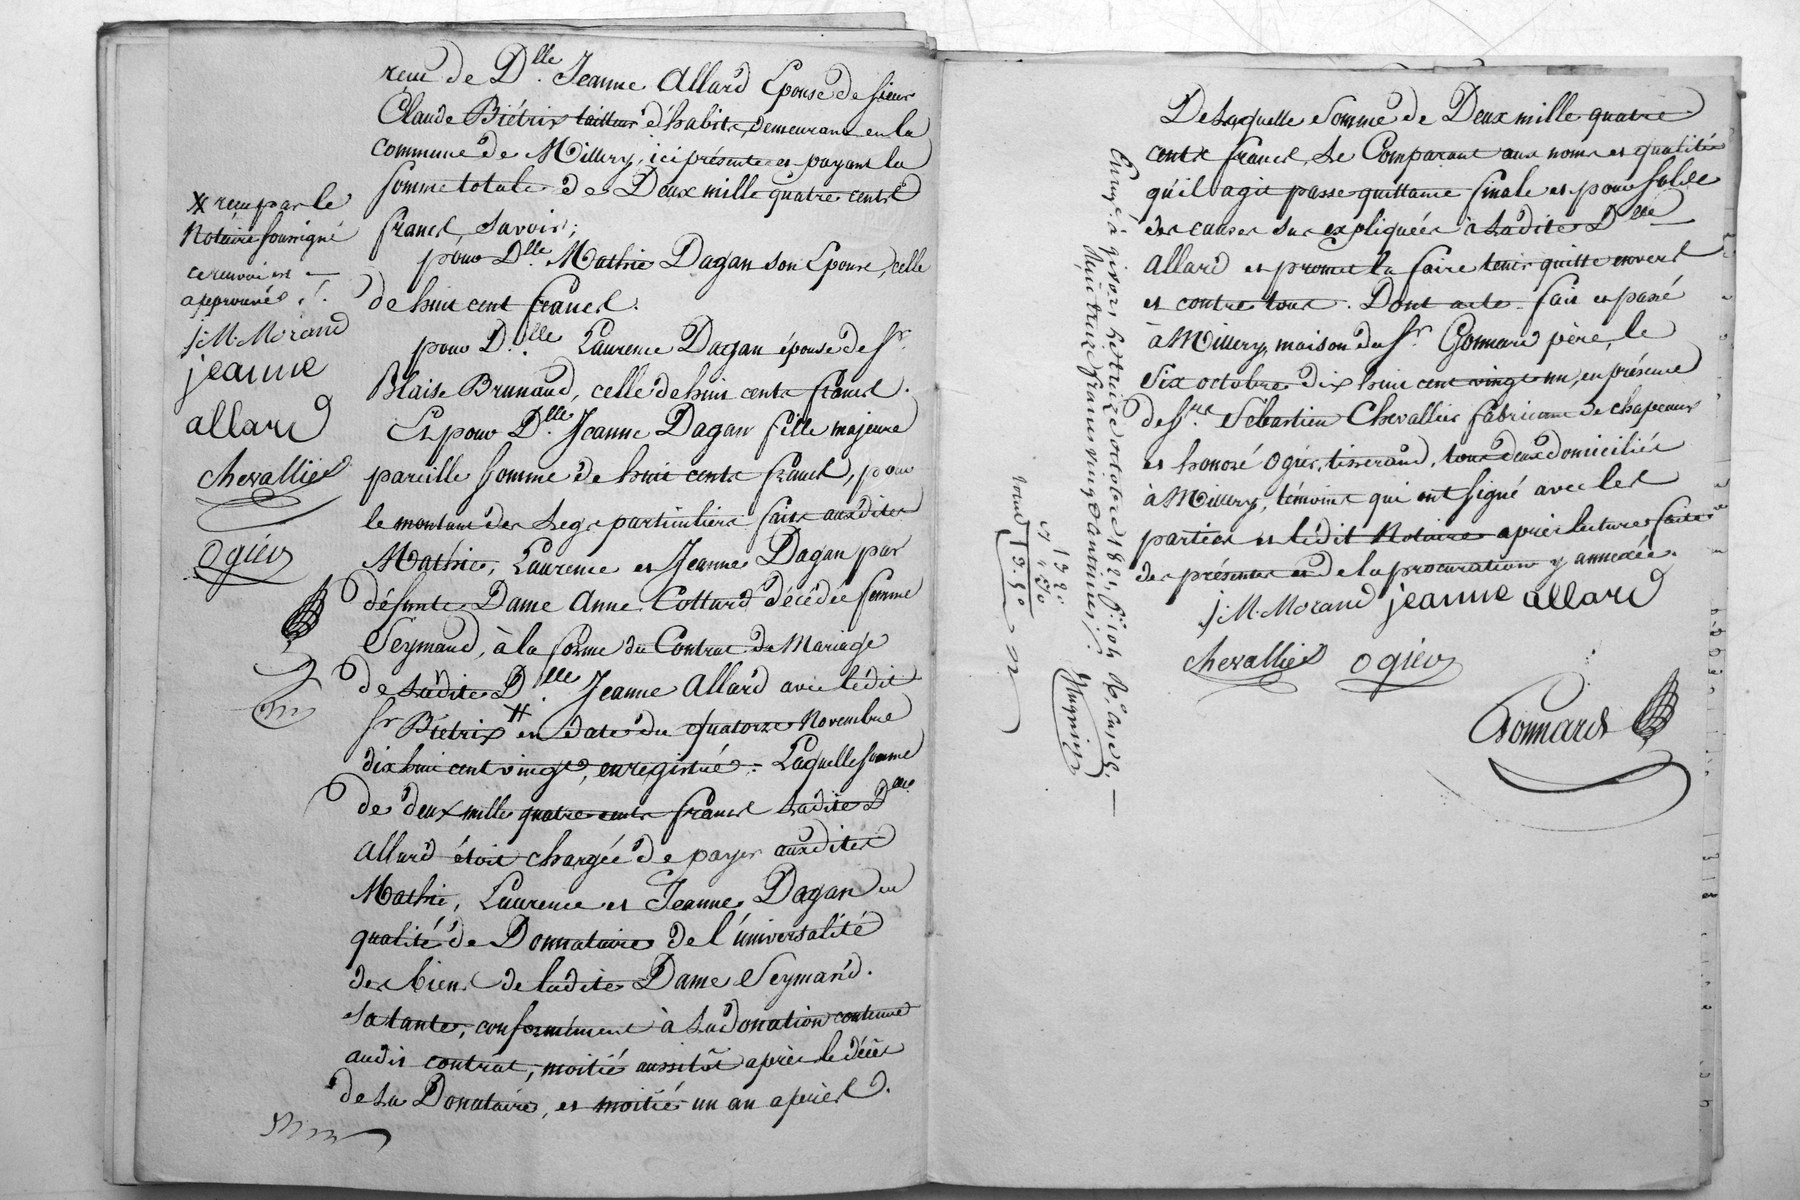 reçu de D.lle Jeanne Allard Epouse de sieur
Claude Biétrix tailleur d'habits, demeurant en la
commune de Millery, ici présente et payant la
somme totale de Deux mille quatre cents
francs savoir;
pour D.lle Mathie Dagan son Epouse, celle
de huit cent francs.
pour D.lle Laurence Dagan épouse de Sr.
Blaise Brunaud, celle de huit cents francs.
Et pour D.lle Jeanne Dagan fille majeure
pareille somme de huit cents francs, pour
le montant des Legs particuliers faits auxdites
Mathie, Laurence et Jeanne Dagan par
défunte Dame Anne Cottard décédée femme
Seymaud, à la forme du Contrat de Mariage
de Ladite D.lle Jeanne Allard avec ledit
Sr Biétrix # en date du quatorze Novembre
dix huit cent vingt, enregistré. Laquelle somme
de deux mille quatre cents francs Ladite D.lle
Allard étoit chargée de payer auxdites
Mathie, Laurence et Jeanne Dagan en
qualité de Donnataire de l'universalité
des biens de ladite Dame Seymard.
sa tante, conformément à La donation contenue
audit contrat, moitié aussitôt après le décès
de La Donataire, et moitié un an après.
# reçu par le
Notaire soussigné
ce renvoi est
approuvé ./.
J. M. Morand
jeanne
allard
chevallier
ogier
De Laquelle Somme de Deux mille quatre
cents francs, Le Comparant aux noms et qualités
qu'il agit passe quittance finale et pour solde
des causes sus expliquées à Ladite D.lle
Allard et promet la faire tenir quitte envers
et contre tous. Dont acte. fait et passé
à Millery, maison du Sr. Gonnard père, le
Six octobre dix huit cent vingt un, en présence
de Srs. Sébastien Chevallier fabricant de chapeaux
et honoré Ogier, tisserand, tous deux domiciliés
à Millery, témoins qui ont signé avec les
parties et ledit Notaire après lecture faite
des présentes et de la procuration y annexée.
J. M. Morand jeanne allard
chevallier ogier
Gonnard
Enregé à givors Le treize octobre 1821, fo. 104
Reçu treize francs vingt centimes ./.